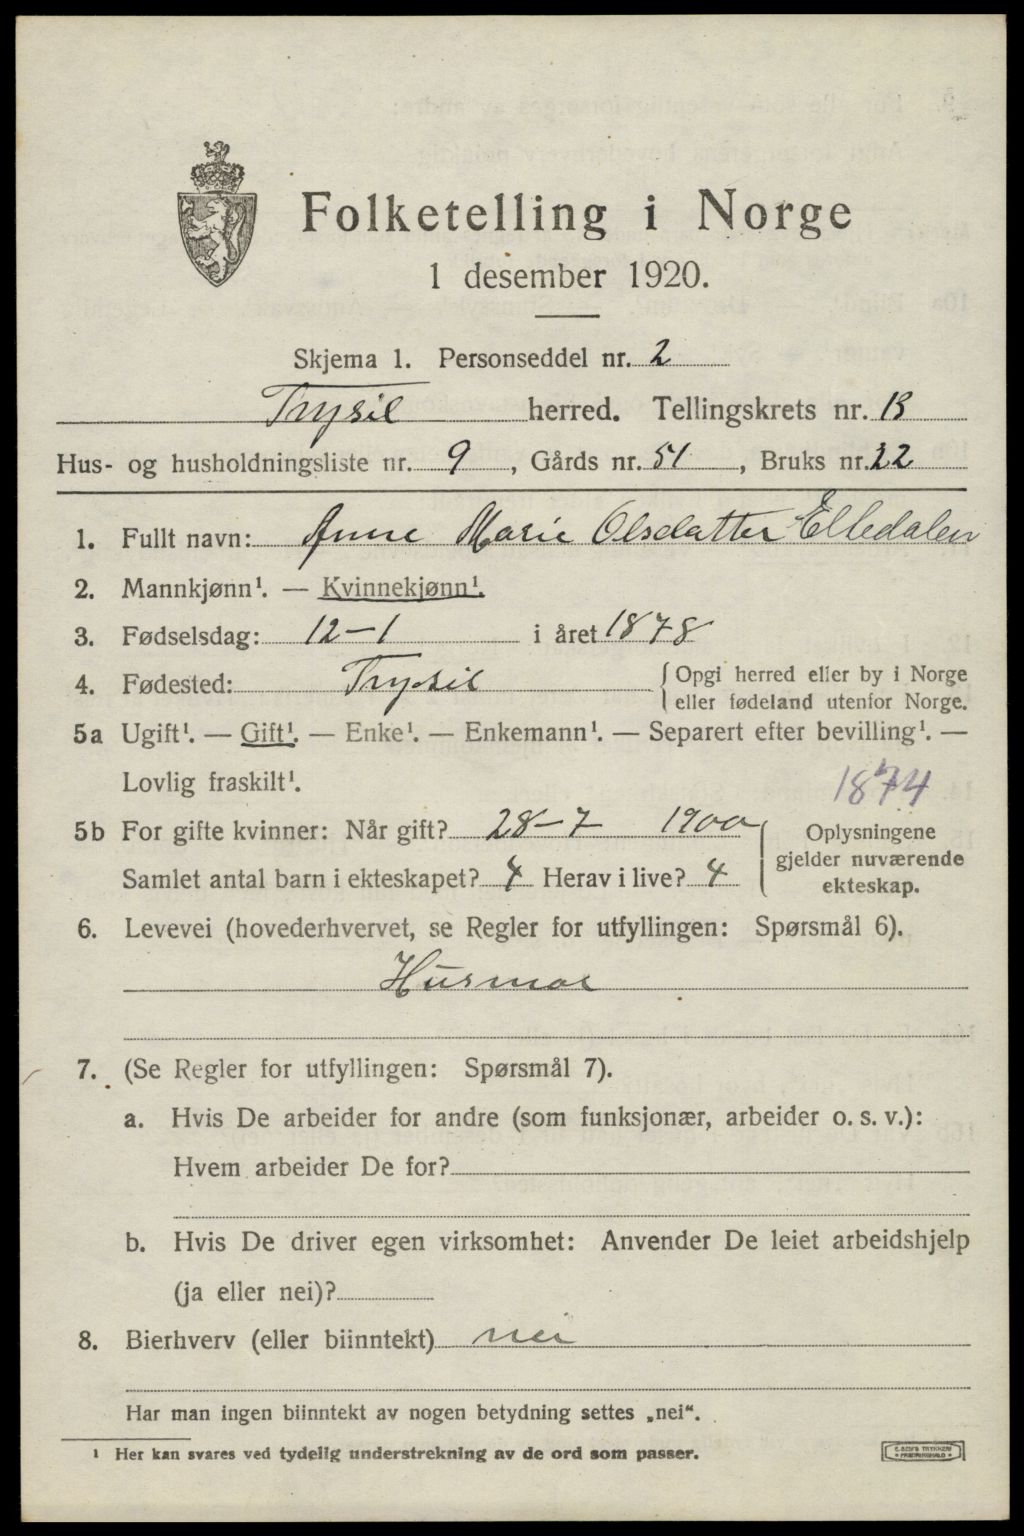 Folketelling i Norge
1 desember 1920.
Skjema 1. Personseddel nr. 2
Trysil herred. Tellingskrets nr. 13
Hus- og husholdningsliste nr. 9, Gårds nr. 51, Bruks nr. 22
1. Fullt navn: Anne Marie Olsdatter Elledalen
2. Mannkjønn¹. — Kvinnekjønn¹.
3. Fødselsdag: 12-1 i året 1878
4. Fødested: Trysil { Opgi herred eller by i Norge
eller fødeland utenfor Norge.
5a Ugift¹. — Gift¹. — Enke¹. — Enkemann¹. — Separert efter bevilling¹. —
Lovlig fraskilt¹.
1874
5b For gifte kvinner: Når gift? 28-7 1900
Samlet antal barn i ekteskapet? 4 Herav i live? 4
Oplysningene
gjelder nuværende
ekteskap.
6. Levevei (hovederhvervet, se Regler for utfyllingen: Spørsmål 6).
Husmor
7. (Se Regler for utfyllingen: Spørsmål 7).
a. Hvis De arbeider for andre (som funksjonær, arbeider o. s. v.):
Hvem arbeider De for?
b. Hvis De driver egen virksomhet: Anvender De leiet arbeidshjelp
(ja eller nei)?
8. Bierhverv (eller biinntekt) nei
Har man ingen biinntekt av nogen betydning settes „nei“.
¹ Her kan svares ved tydelig understrekning av de ord som passer.